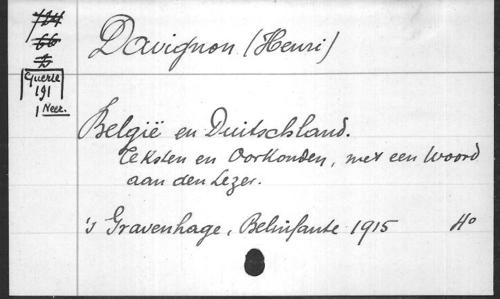 724
66
B
Guerre
191
1 Neer.
Davignon (Henri)
België en Duitschland.
Teksten en Oorkonden, met een Woord
aan den Lezer.
's Gravenhage, Belinfante 1915 4º